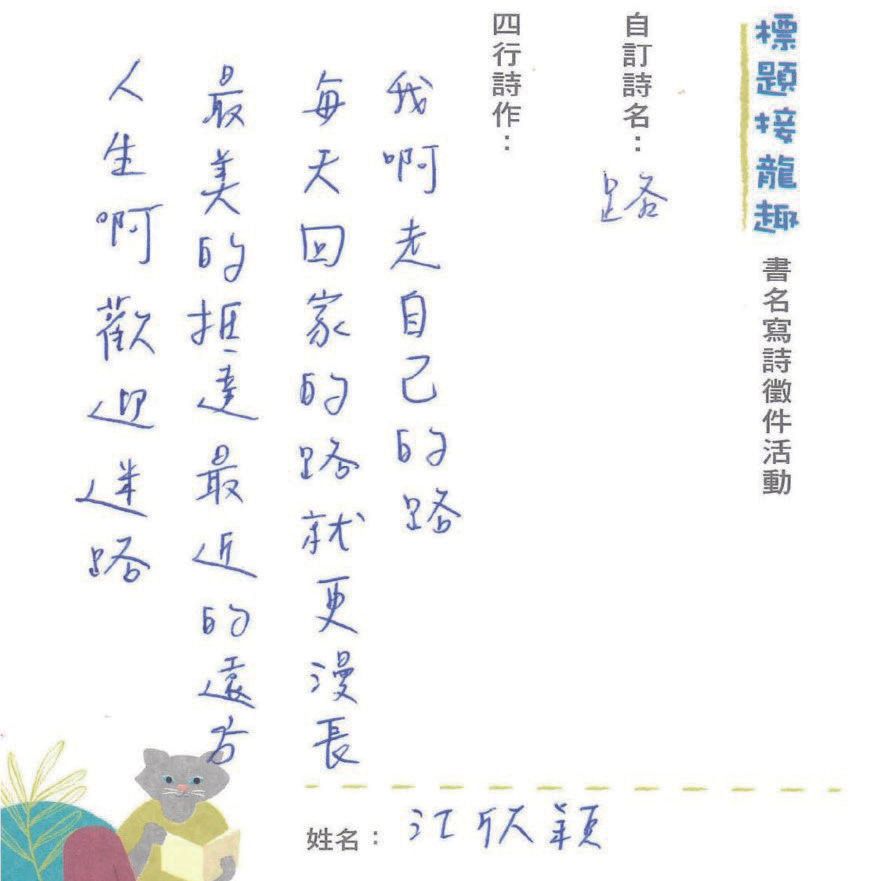 標題接龍趣 書名寫詩徵件活動
自訂詩名：路
四行詩作：
我啊走自己的路
每天回家的路就更漫長
最美的抵達最近的遠方
人生啊歡迎迷路
姓名：江欣穎